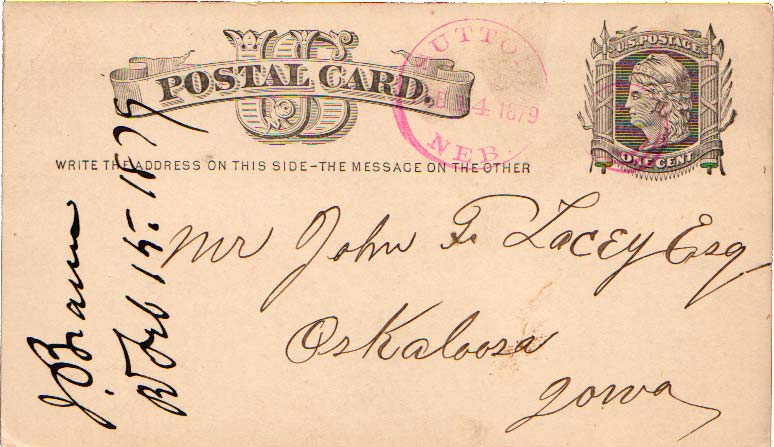 US
POSTAL CARD.
WRITE THE ADDRESS ON THIS SIDE–THE MESSAGE ON THE OTHER
SUTTO
4 1879
NEB.
U.S. POSTAGE
ONE CENT
Mr John F. Lacey Esq
Oskaloosa
Iowa
Feb 15. 1879